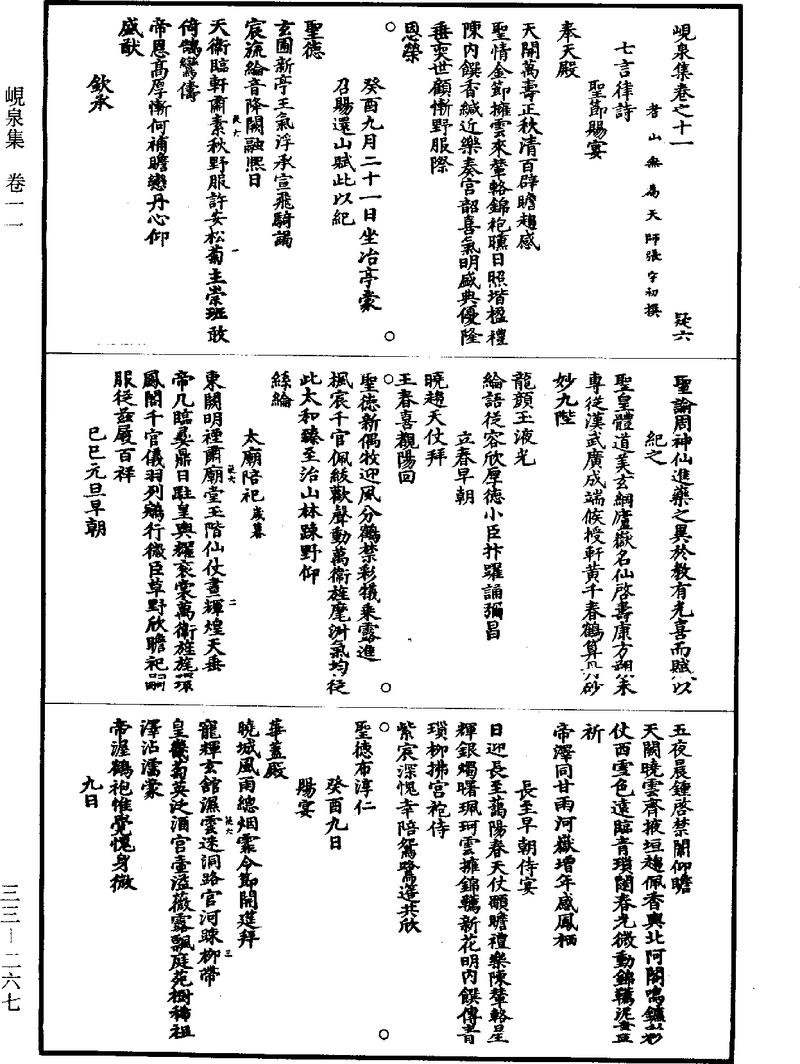 峴泉集卷之十一 疑六
耆山無為天師張宇初撰
七言律詩
聖節賜宴
奉天殿
天開萬壽正秋清百辟瞻趨感
聖情金節擁雲來輦輅錦袍曛日照堦楹禮
陳內饌香緘近樂奏宮韶喜氣明盛典優隆
垂奕世顧慚野服際
恩榮
癸酉九月二十一日坐冶亭蒙
召賜還山賦此以紀
聖德
玄圃新亭王氣浮承宣飛騎謁
宸流綸音降闕融熙日
天衛臨軒肅素秋野服許安松菊主崇班敢
倚鵷鸞儔
帝恩高厚慚何補瞻戀丹心仰
盛猷
欽承
聖諭周神仙進藥之異於教有光喜而賦以
紀之
聖皇體道美玄綱廬嶽名仙啓壽康方朔來
專從漢武廣成端候授軒黃千春鶴算砂
妙九陛
龍顏玉液光
綸語從容欣厚德小臣抃躍誦彌昌
立春早朝
曉趨天仗拜
王春喜覩陽回
聖德新偶牧迎風分鶴禁彩犠乘露進
楓宸千官佩紱歡聲動萬衛旌麾淑氣均從
此太和臻至治山林踈野仰
絲綸
太廟陪祀歲暮
東闕明禋肅廟堂玉階仙仗晝輝煌天垂
帝几臨彝鼎日駐皇輿耀衮裳萬衛旌旄環
鳳閣千官儀羽列鵷行微臣草野欣瞻祀嗣
服從茲展百祥
己巳元旦早朝
五夜晨鍾啓禁闈仰瞻
天闕曉雲齊掖垣趨佩香輿北阿閣鳴鑣彩
仗西雪色遠臨青瑣闥春光微動錦韉泥
祈
帝澤同甘雨河嶽增年感鳳栖
長至早朝侍宴
日迎長至藹陽春天仗頤瞻禮樂陳輦輅星
輝銀燭曙珮珂雲擁錦韉新花明內饌傳青
瑣柳拂宮袍侍
紫宸深愧幸陪鴛鷺筵共欣
聖德布淳仁
癸酉九日
賜宴
華蓋殿
曉城風雨總烟霏令節開筵拜
寵輝玄館濕雲迷洞路官河踈柳帶
皇畿萄英泛酒宮壺溢薇露飄庭苑樹稀祖
澤沾濡蒙
帝渥鶴袍惟覺愧身微
九日
峴泉集 卷一一
三三—二六七